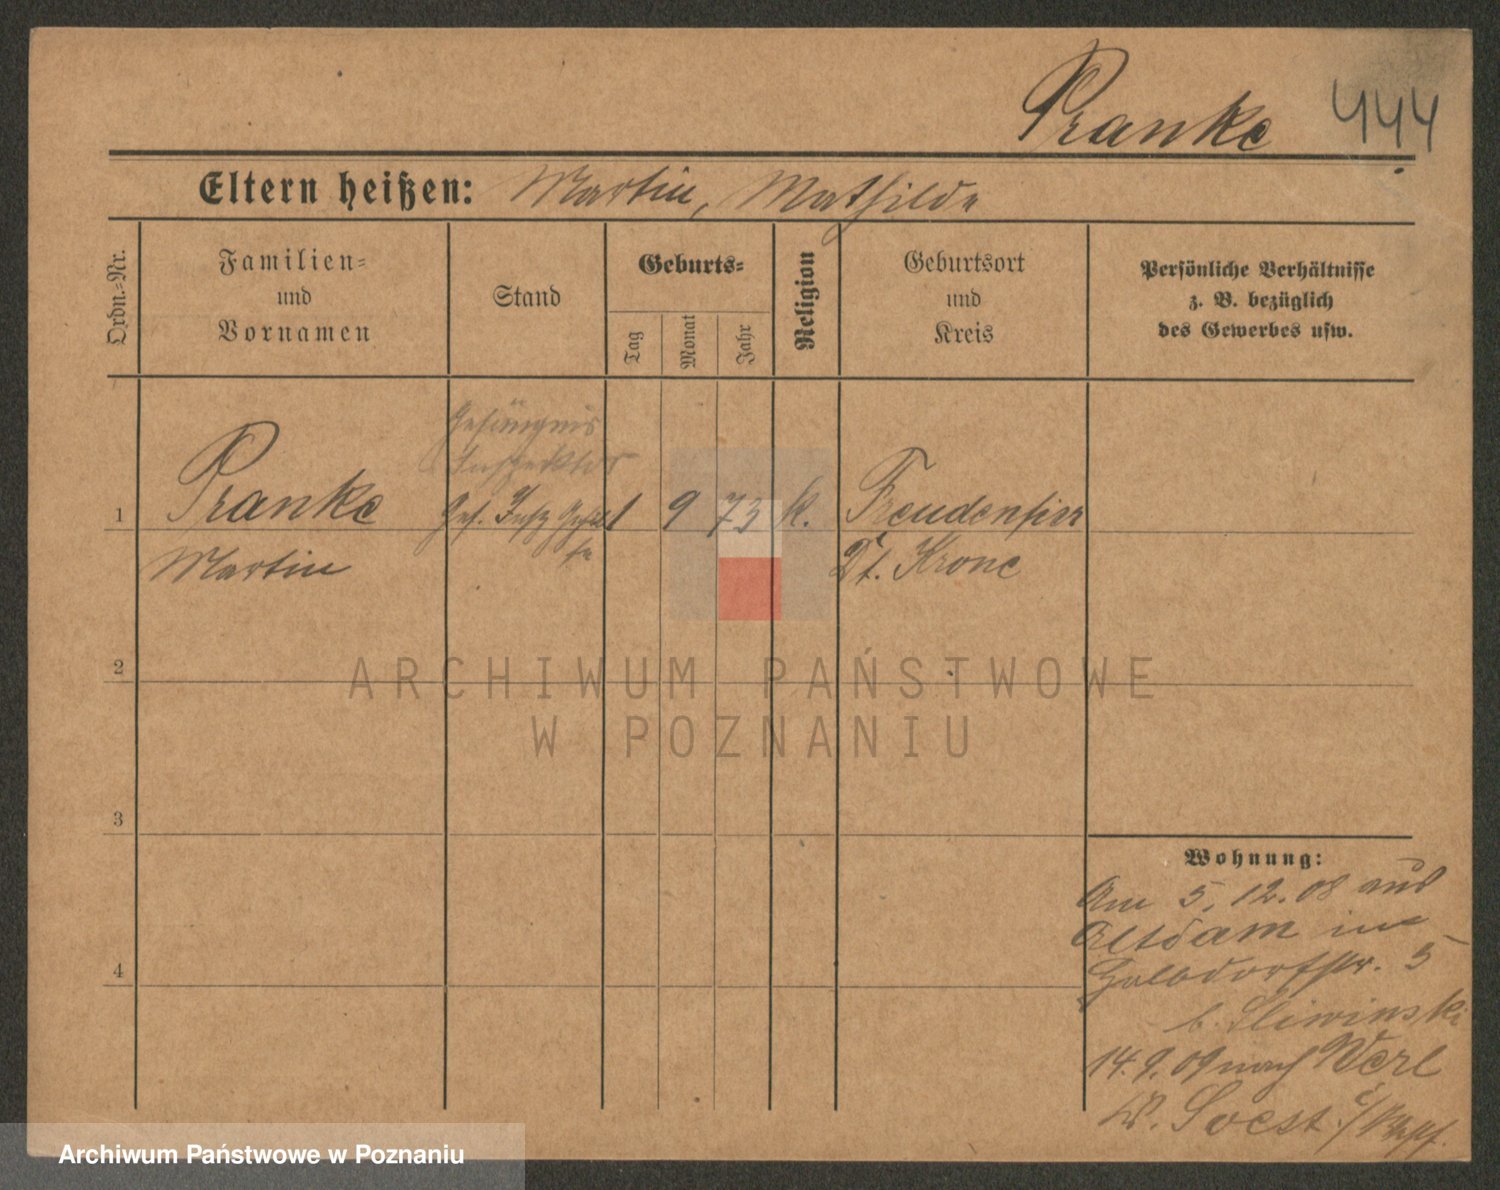 Pranke 444
Eltern heißen: Martin, Mathilde
Ordn.-Nr.
Familien-
und
Vornamen
Stand
Geburts-
Tag
Monat
Jahr
Religion
Geburtsort
und
Kreis
Persönliche Verhältnisse
z. B. bezüglich
des Gewerbes usw.
Gefängnis
Inspektor
1 Pranke Gef. Insp 1 9 73 k. Freudenfier
Martin Dt. Krone
2
3
4
Wohnung:
Am 5. 12. 08 aus
Altdam in
Halbdorfstr. 5
b. Sliwinski
14. 9. 09 nach Werl
Kr. Soest i/Westf.
ARCHIWUM PAŃSTWOWE
W POZNANIU
Archiwum Państwowe w Poznaniu